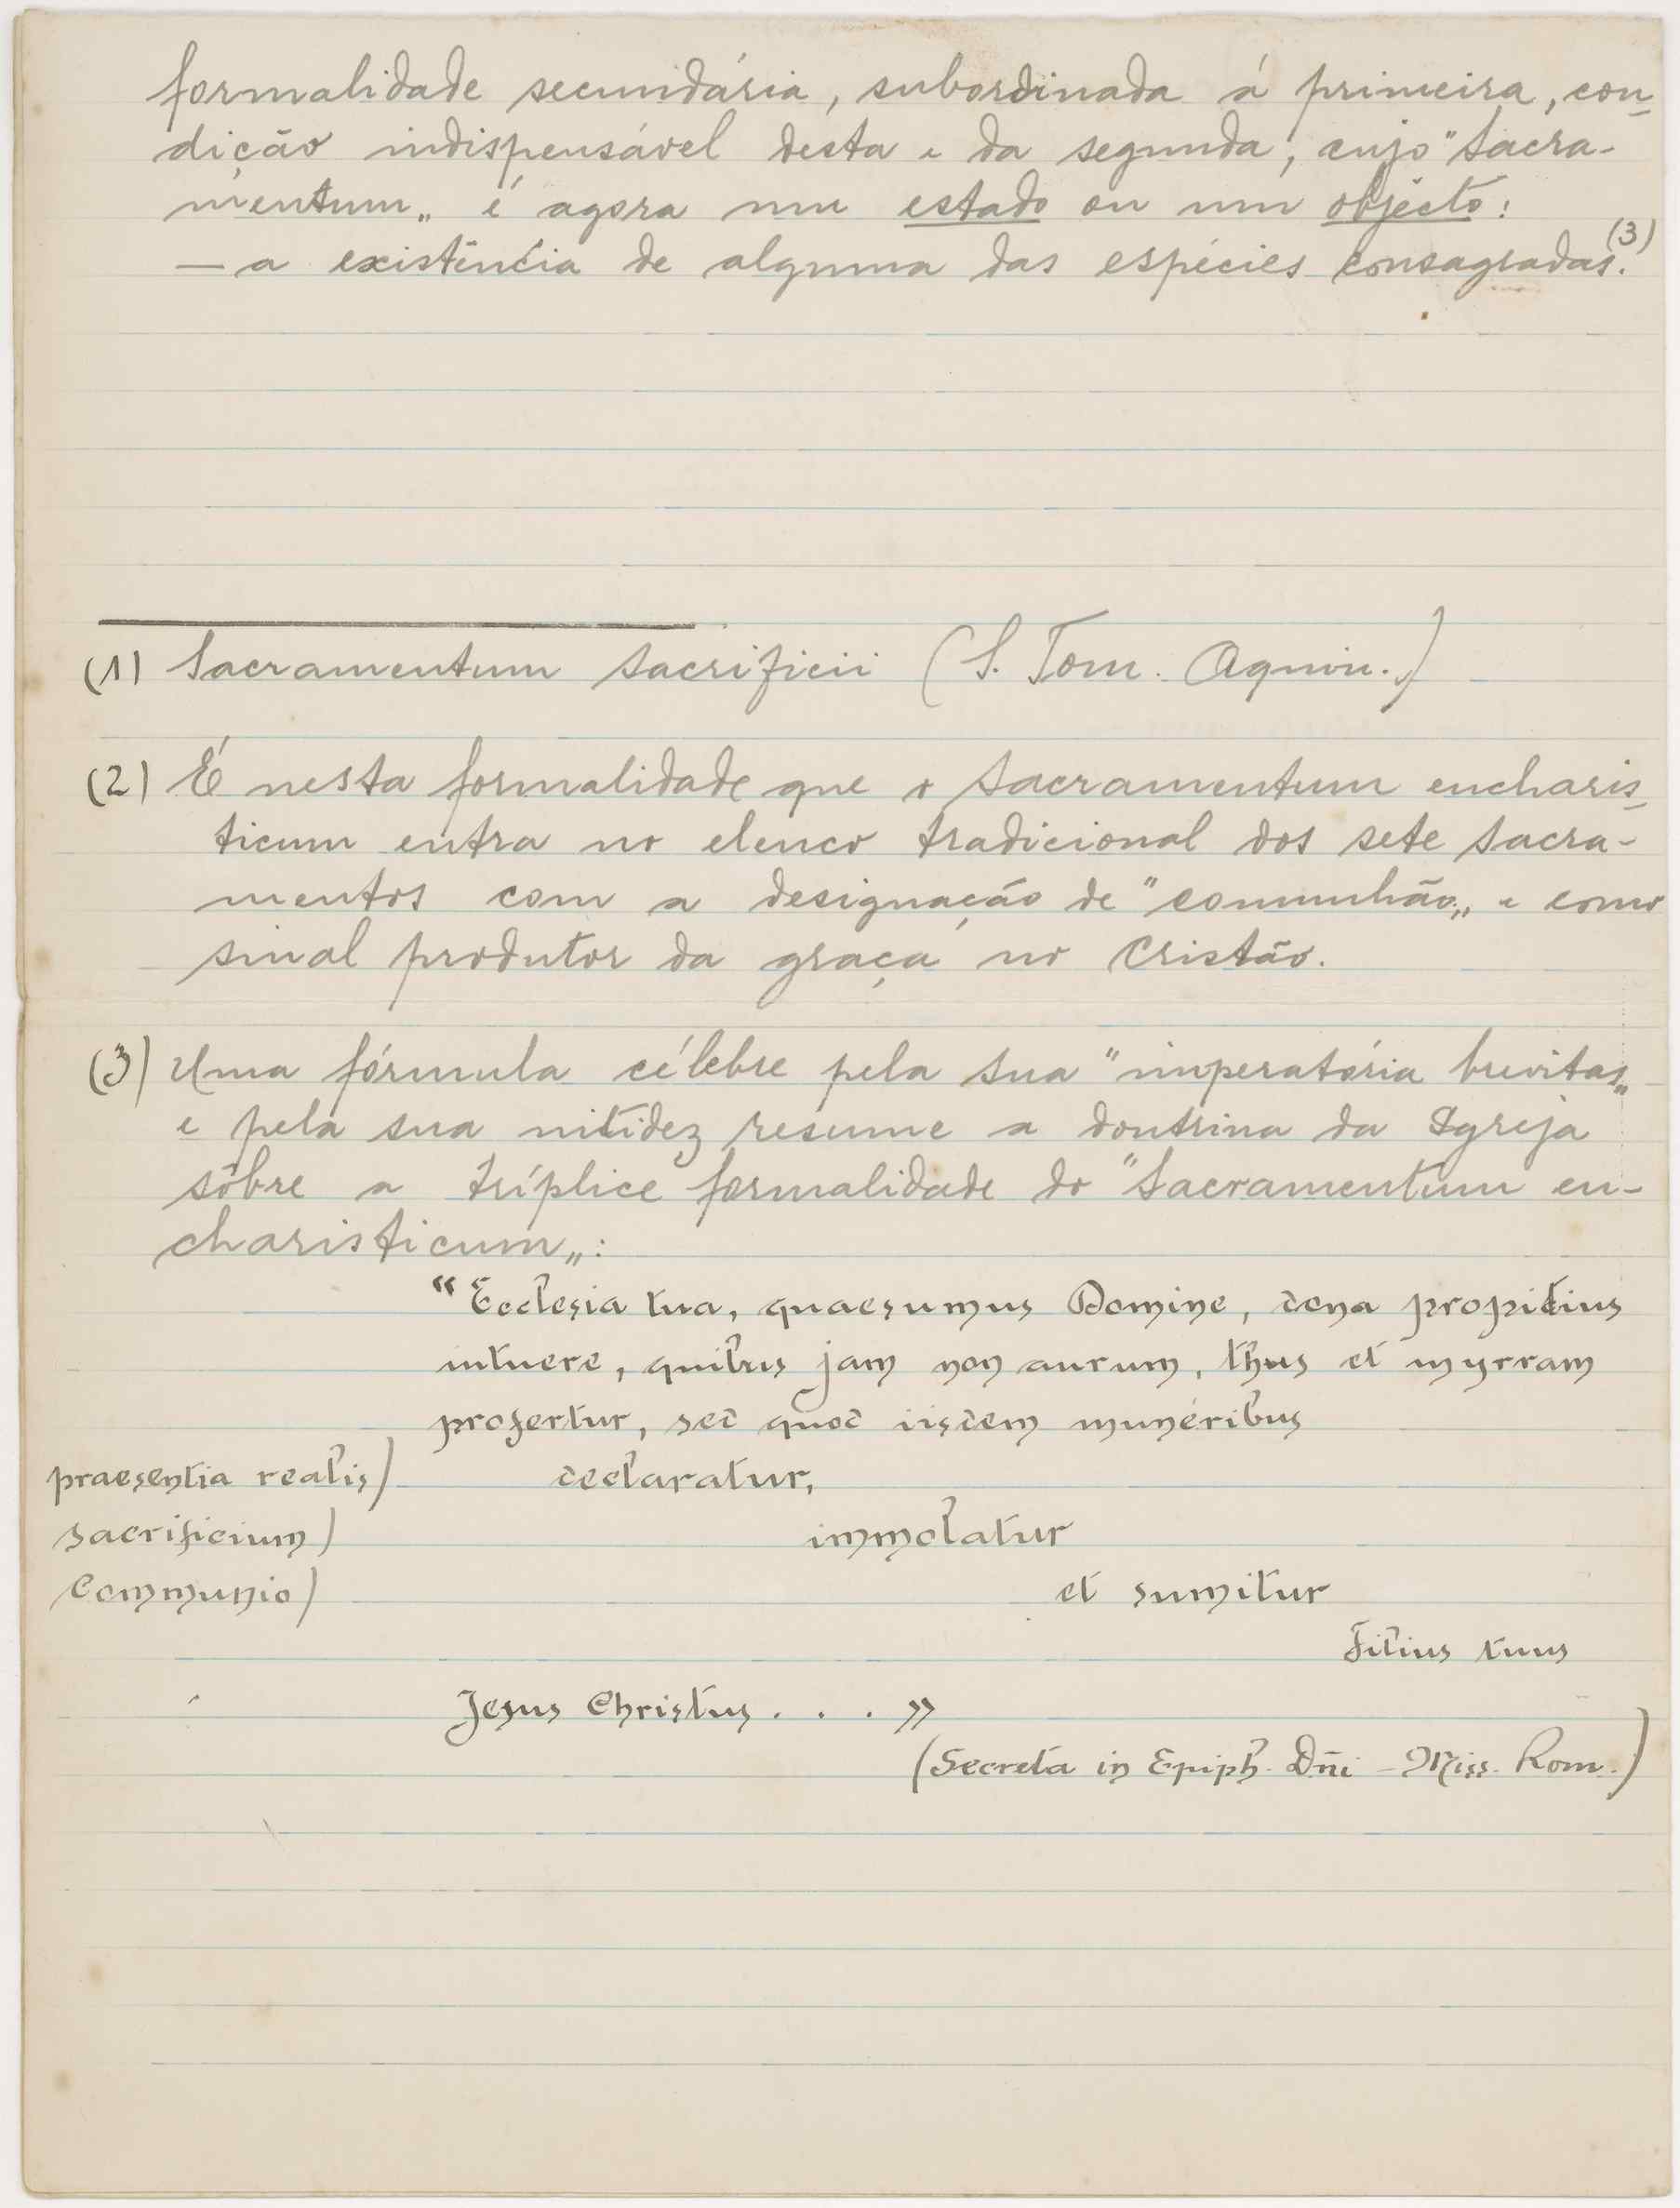 formalidade secundária, subordinada á primeira, con-
dição indispensável desta e da segunda, cujo "Sacra-
mentum„ é agora um estado ou um objécto:
— a existência de alguma das espécies consagradas. (3)
(1) Sacramentum Sacrificii (S. Tom. Aquin.)
(2) É nesta formalidade que o Sacramentum eucharis-
ticum entra no elenco tradicional dos sete Sacra-
mentos com a designação de "comunhão„ e como
sinal produtor da graça no Cristão.
(3) Uma fórmula célebre pela sua "imperatória brevitas„
e pela sua nitidez resume a doutrina da Igreja
sôbre a tríplice formalidade do "Sacramentum eu-
charisticum„:
"Ecclesia tua, quaesumus Domine, dona propitius
intuere, quibus jam non aurum, thus et myrram
profertur, sed quod iisdem munéribus
praesentia realis) declaratur,
sacrificium) immolatur
Communio) et sumitur
Filius tuus
Jesus Christus . . . »
(Secreta in Epiph. Dñi - Miss. Rom.)